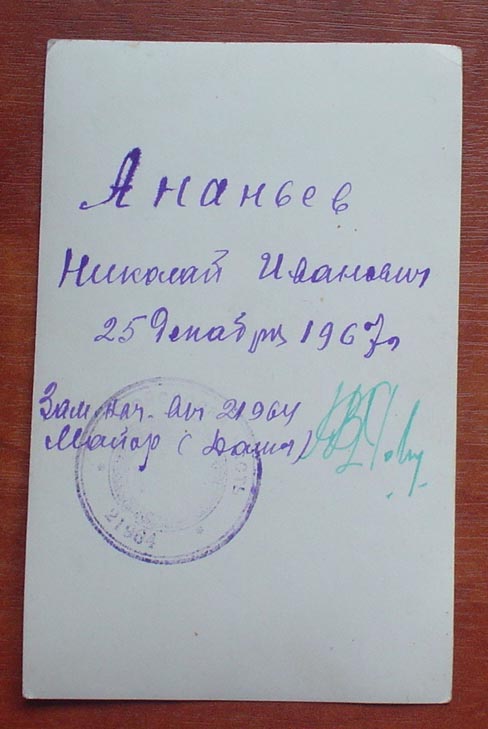 Ананьев
Николай Иванович
25 Декабря 1967г
Зам. нач. в/ч 21964
Майор (
21964